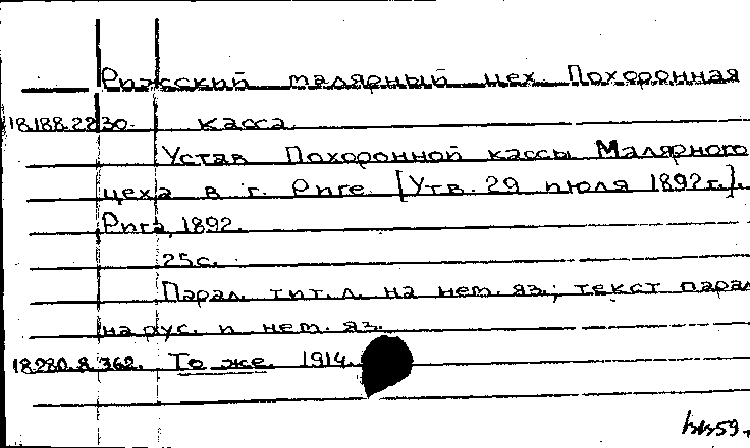 Рижский малярный цех. Похоронная
18.188.2830. касса.
Устав Похоронной кассы Малярного
цеха в г. Риге. [Утв. 29 июля 1892 г.].
Рига, 1892.
25 с.
Парал. тит. л. на нем. яз.; текст парал
на рус. и нем. яз.
18.280.8.362. То же. 1914.
59